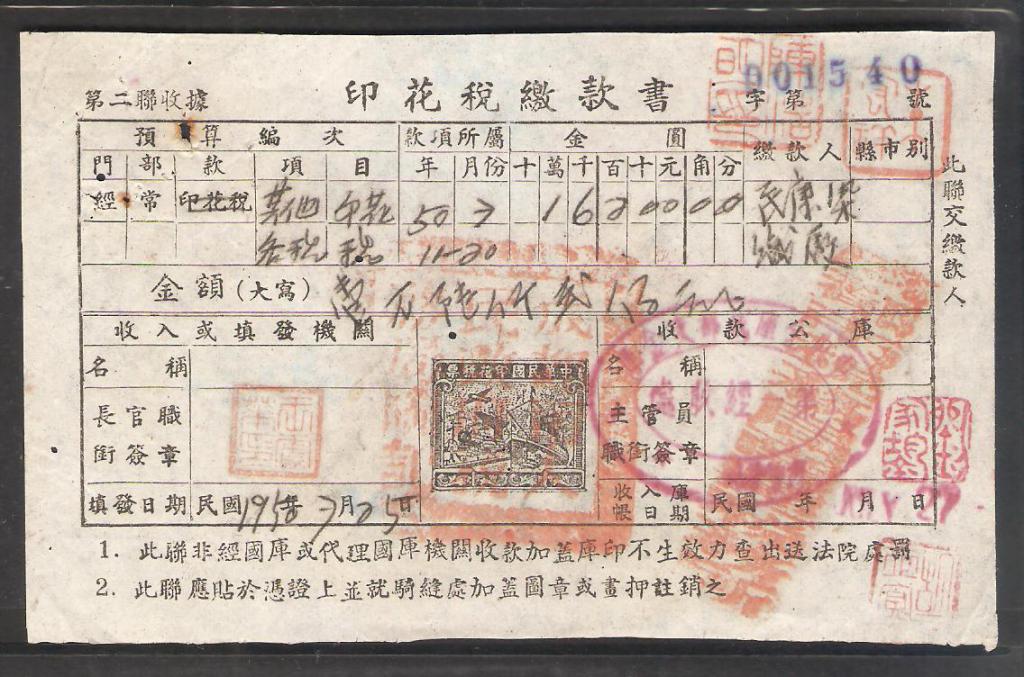 印花稅繳款書
第二聯收據
字第 001540 號
預算編次 款項所屬 金圓 繳款人 縣市別
門 部 款 項 目 年 月份 十 萬 千 百 十 元 角 分
經 常 印花稅 其他 印花 50 1 6 2 0 0 0 0 民康染
各稅 稅 11-20 織廠
金額(大寫)
收入或填發機關 收款公庫
中華民國印花稅票
名稱 名稱
長官職銜簽章 主管員職銜簽章
填發日期 民國195 年 月25日 收入庫帳日期 民國 年 月 日
此聯交繳款人
1. 此聯非經國庫或代理國庫機關收款加蓋庫印不生效力查出送法院處罰
2. 此聯應貼於憑證上並就騎縫處加蓋圖章或畫押註銷之